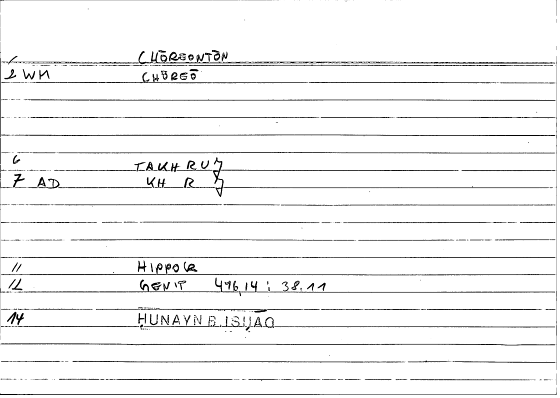 1 CHŌREONTŌN
2 WN CHŌREŌ
6 TAKHRUǦ
7 AD KH R Ǧ
11 HIPPOCR
12 GENIT 476,14 : 38.11
14 ḤUNAYN B. ISḤĀQ